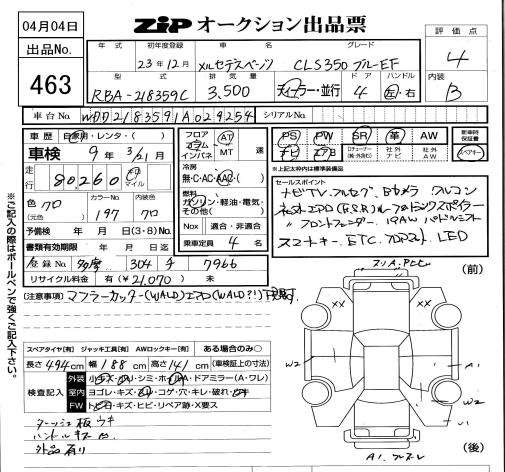 04月04日
出品No.
463
ZIP オークション出品票
評価点
4
内装
B
年式 初年度登録 車名 グレード
23年12月 メルセデスベンツ CLS350 ブルーEF
型式 排気量 ドア ハンドル
RBA-218359C 3,500 ディーラー・並行 4 左・右
車台No. WDD2183591A029254 シリアルNo.
車歴 自家用・レンタ・( )
車検 9年 3/21月
走行 80,260 キロ マイル
色 クロ
(元色)
カラーNo 197
内装色 クロ
予備検 年 月 日(3・8)No.
書類有効期限 年 月 日迄
登録No 多摩 304 す 7966
リサイクル料金 有(¥21,070) 未
フロア コラム インパネ AT MT 速
冷房
無・C・AC・AAC( )
燃料
ガソリン・軽油・電気・
その他( )
Nox 適合・非適合
乗車定員 4 名
PS PW SR 革 AW
ナビ エアB 純正 ナビ 社外 AW
新車時保証書
スペアキー
※上記太枠内は標準装備品
セールスポイント
ナビTV フルセグ Bカメラ クルコン
スマートキー ETC LED
※ご記入の際はボールペンで強くご記入下さい。
[注意事項] マフラーカッター(WALD)エアロ(WALD?!)
スペアタイヤ[有] ジャッキ工具[有] AWロックキー[有] ある場合のみ○
長さ 494cm 幅 188cm 高さ 141cm (車検証上の寸法)
検査記入
外装 小キズ・凹・シミ・ホイルA・ドアミラー(A・ワレ)
室内 ヨゴレ・キズ・スリ・コゲ・穴・キレ・破れ・ビキ
FW トビ石・キズ・ヒビ・リペア跡・X要ス
ダッシュ板 ウキ
ハンドルキズ
外品有り
(前)
XX
XX
W2
A1
W2
A1
(後)